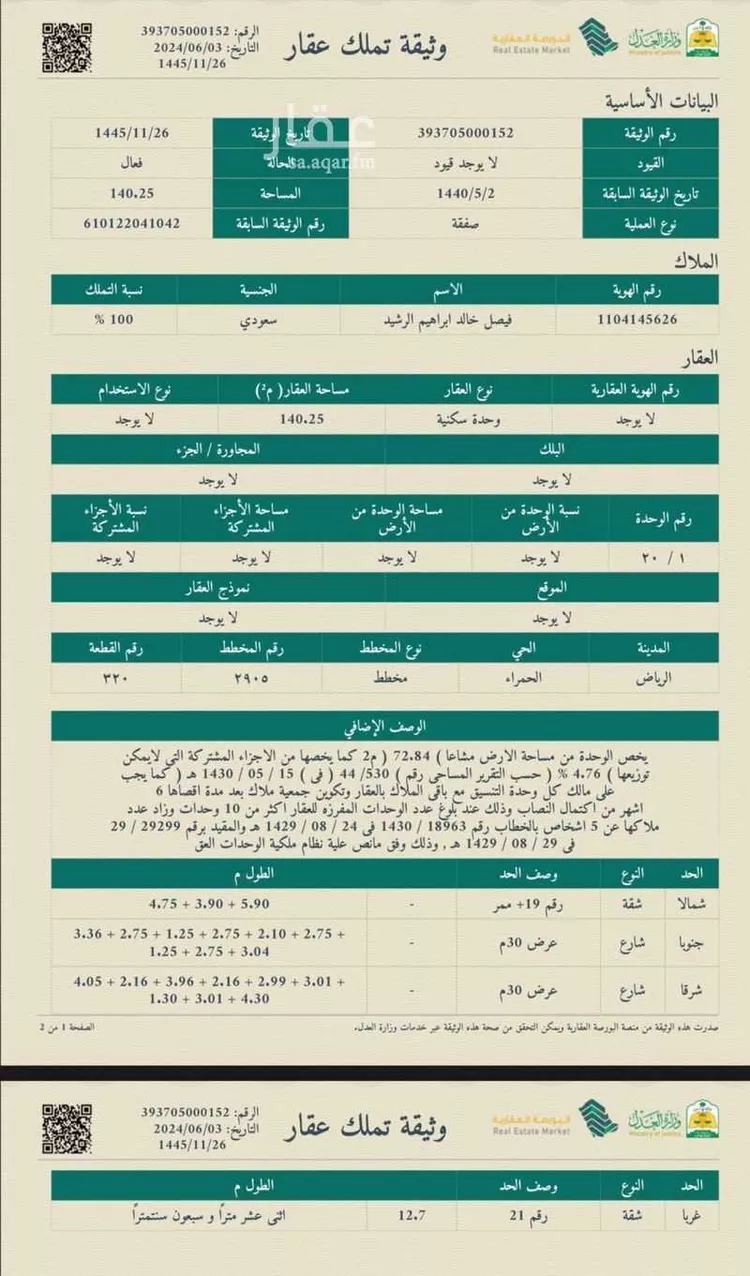 وزارة العدل
Ministry of Justice
البورصة العقارية
Real Estate Market
وثيقة تملك عقار
الرقم: 393705000152
التاريخ: 2024/06/03
1445/11/26
البيانات الأساسية
عقار
sa.aqar.fm
رقم الوثيقة 393705000152 تاريخ الوثيقة 1445/11/26
القيود لا يوجد قيود الحالة فعال
تاريخ الوثيقة السابقة 1440/5/2 المساحة 140.25
نوع العملية صفقة رقم الوثيقة السابقة 610122041042
الملاك
رقم الهوية الاسم الجنسية نسبة التملك
1104145626 فيصل خالد ابراهيم الرشيد سعودي 100 %
العقار
رقم الهوية العقارية نوع العقار مساحة العقار( م²) نوع الاستخدام
لا يوجد وحدة سكنية 140.25 لا يوجد
البلك المجاورة / الجزء
لا يوجد لا يوجد
رقم الوحدة نسبة الوحدة من الأرض مساحة الوحدة من الأرض مساحة الأجزاء المشتركة نسبة الأجزاء المشتركة
١ / ٢٠ لا يوجد لا يوجد لا يوجد لا يوجد
الموقع نموذج العقار
لا يوجد لا يوجد
المدينة الحي نوع المخطط رقم المخطط رقم القطعة
الرياض الحمراء مخطط ٢٩٠٥ ٣٢٠
الوصف الإضافي
يخص الوحدة من مساحة الارض مشاعا ) 72.84 ( م2 كما يخصها من الاجزاء المشتركة التى لايمكن
توزيعها ) 4.76 % ( حسب التقرير المساحى رقم ) 530/ 44 ( فى ) 15 / 05 / 1430 هـ ( كما يجب
على مالك كل وحدة التنسيق مع باقى الملاك بالعقار وتكوين جمعية ملاك بعد مدة اقصاها 6
اشهر من اكتمال النصاب وذلك عند بلوغ عدد الوحدات المفرزه للعقار اكثر من 10 وحدات وزاد عدد
ملاكها عن 5 اشخاص بالخطاب رقم 18963 / 1430 فى 24 / 08 / 1429 هـ والمقيد برقم 29299 / 29
فى 29 / 08 / 1429 هـ , وذلك وفق مانص علية نظام ملكية الوحدات العق
الحد النوع وصف الحد الطول م
شمالا شقة رقم 19+ ممر - 4.75 + 3.90 + 5.90
جنوبا شارع عرض 30م - 3.36 + 2.75 + 1.25 + 2.75 + 2.10 + 2.75 +
1.25 + 2.75 + 3.04
شرقا شارع عرض 30م - 4.05 + 2.16 + 3.96 + 2.16 + 2.99 + 3.01 +
1.30 + 3.01 + 4.30
صدرت هذه الوثيقة من منصة البورصة العقارية ويمكن التحقق من صحة هذه الوثيقة عبر خدمات وزارة العدل. الصفحة 1 من 2
وزارة العدل
Ministry of Justice
البورصة العقارية
Real Estate Market
وثيقة تملك عقار
الرقم: 393705000152
التاريخ: 2024/06/03
1445/11/26
الحد النوع وصف الحد الطول م
غربا شقة رقم 21 12.7 اثنى عشر متراً و سبعون سنتمتراً